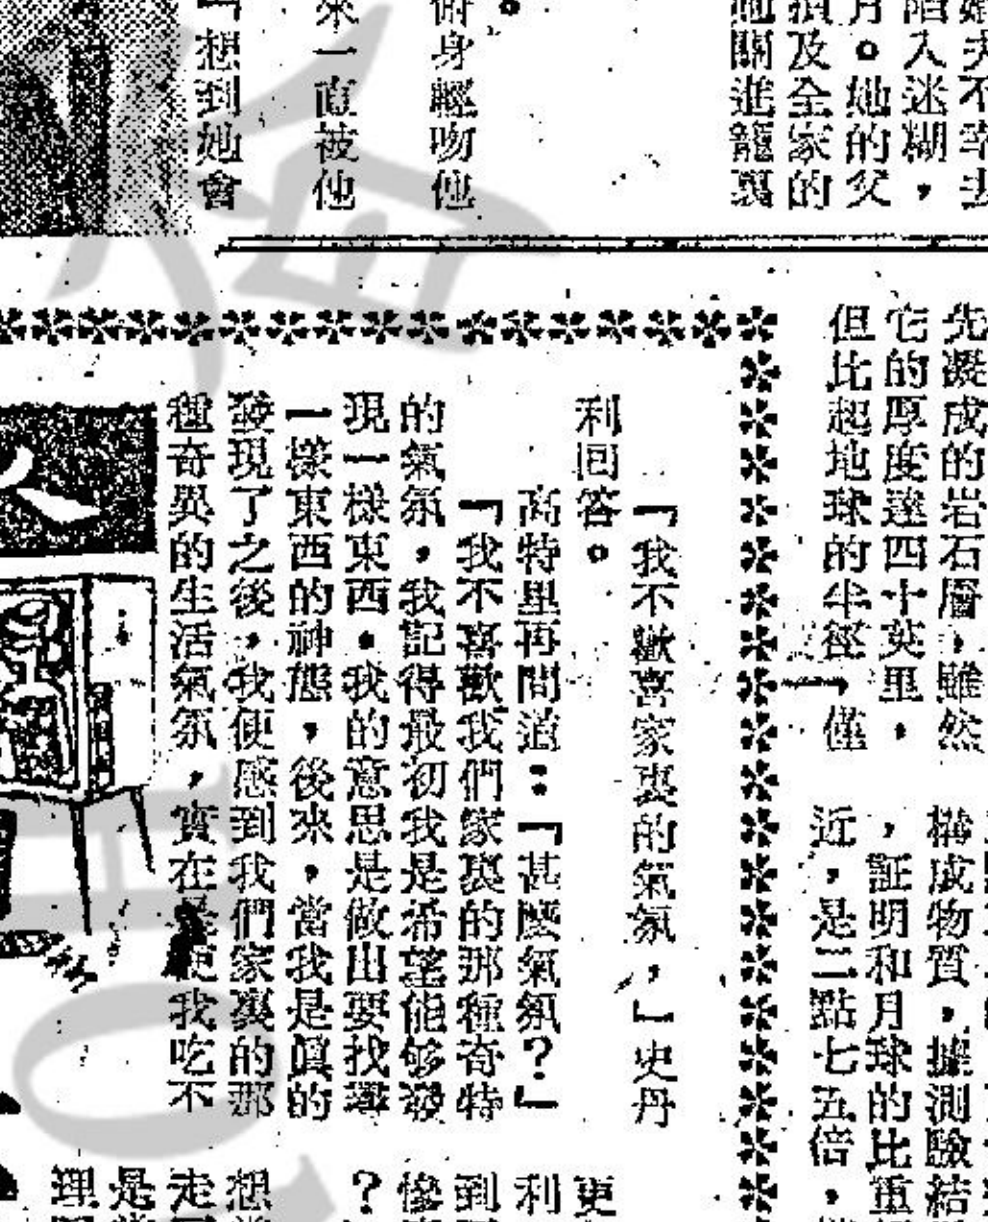 想到她會
來一直被他
俯身輕吻他
進籠裏
及全家的
月。她的父
陷入迷糊，
先凝成的岩石層，雖然
它的厚度達四十英里，
但比起地球的半徑，僅
構成物質，據測驗結
，証明和月球的比重
近，是二點七五倍，
「我不歡喜家裏的氣氛，」史丹
利回答。
高特里再問道：「甚麼氣氛？」
「我不喜歡我們家裏的那種奇特
的氣氛，我記得最初我是希望能够發
現一樣東西。我的意思是做出要找尋
一樣東西的神態，後來，當我是眞的
發現了之後，我便感到我們家裏的那
種奇異的生活氣氛，實在是使我吃不
更
利
到
慘
？
想
走
是
理